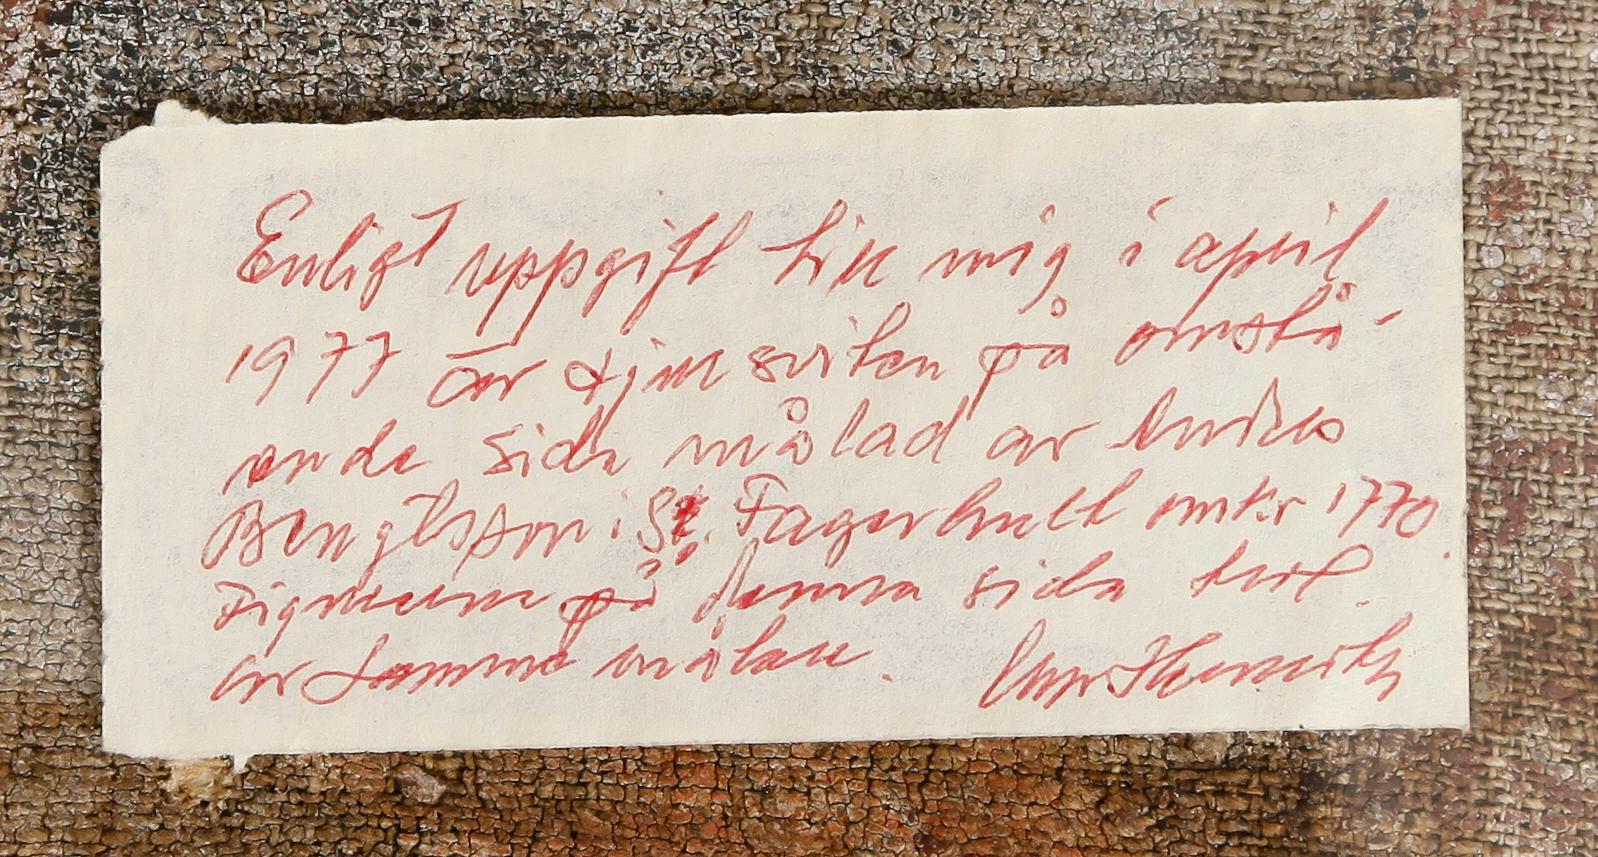 Enligt uppgift till mig i april
1977 är sviten på omstå-
ende sida målad av Anders
Bengtsson i St. Fagerhult omkr 1770.
Figurerna på denna sida
av samme målare.